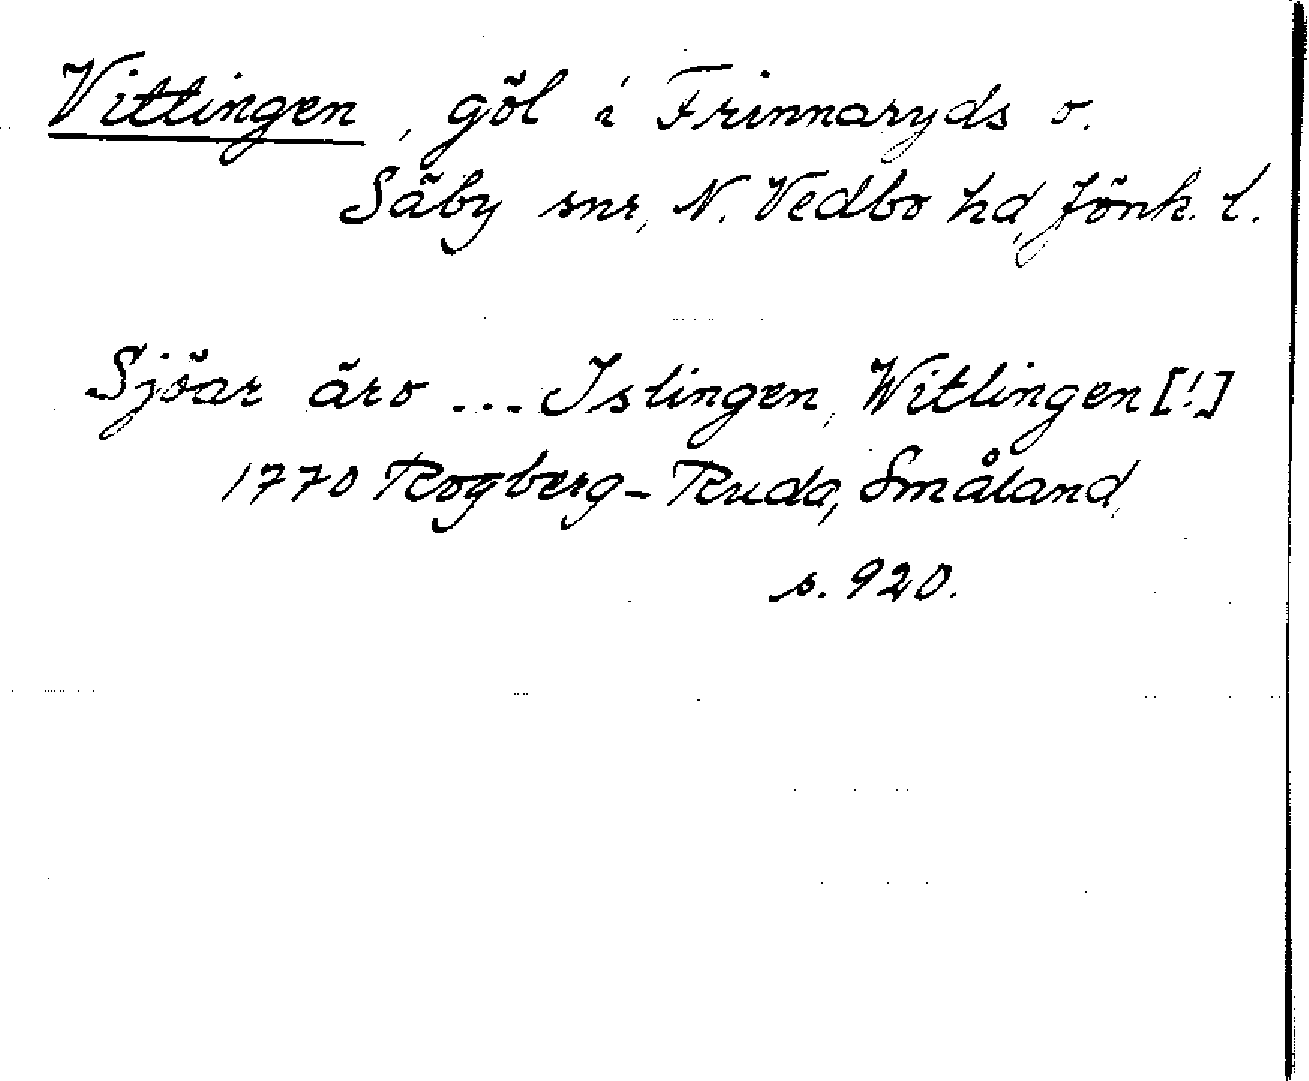 Vittingen, göl i Frinnaryds o.
Säby snr, N. Vedbo hd, Jönk. l.
Sjöar äro ... Islingen, Witlingen [!]
1770 Rogberg-Ruda, Småland,
s. 920.